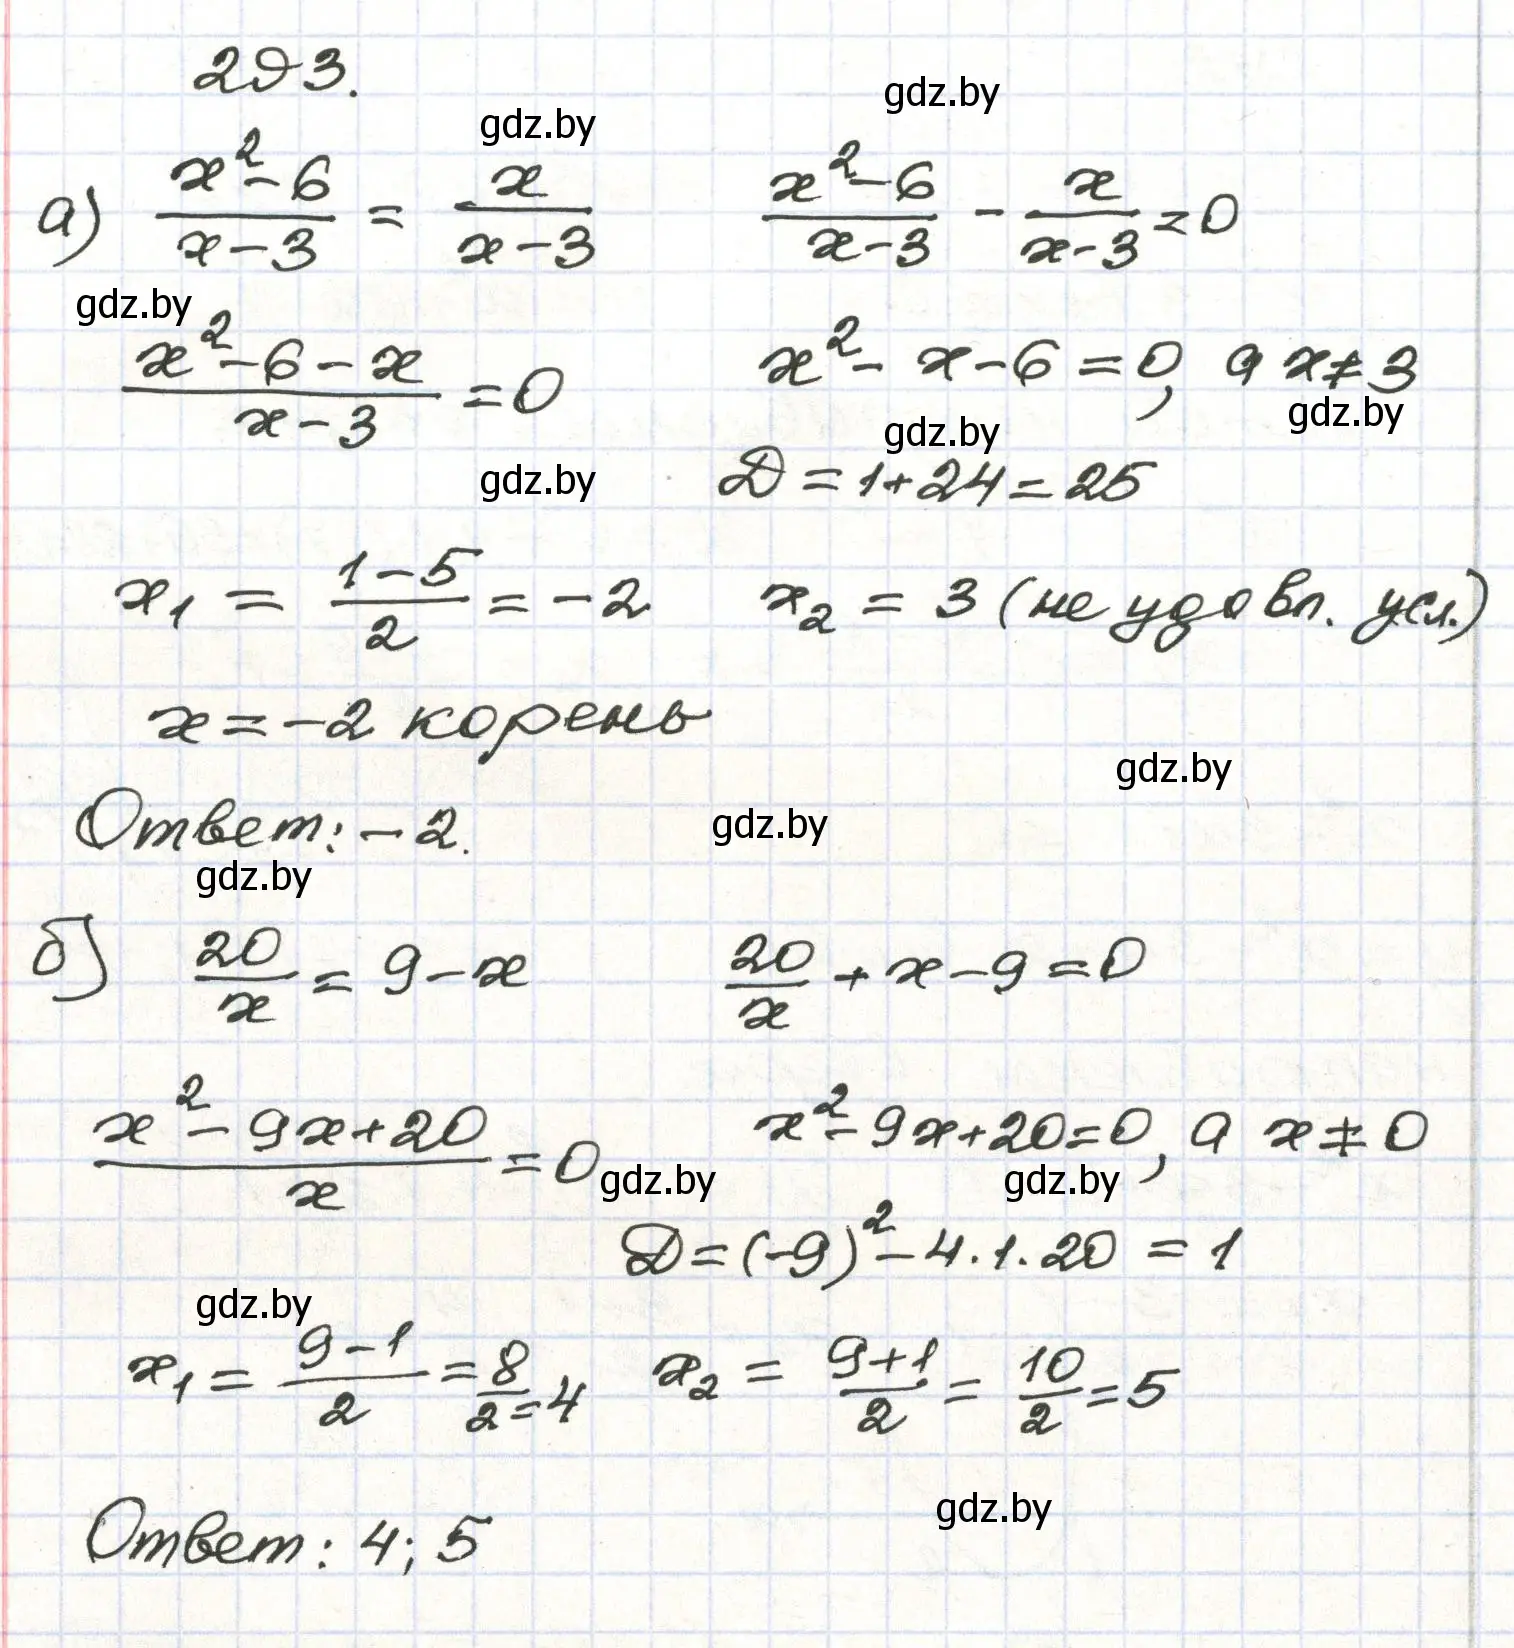 203.
gdz.by
gdz.by
а) (x² - 6)/(x - 3) = x/(x - 3)    (x² - 6)/(x - 3) - x/(x - 3) = 0
gdz.by
(x² - 6 - x)/(x - 3) = 0    x² - x - 6 = 0, а x ≠ 3
gdz.by
gdz.by
gdz.by
Д = 1 + 24 = 25
x₁ = (1 - 5)/2 = -2    x₂ = 3 (не удовл. усл.)
x = -2 корень
gdz.by
Ответ: -2.
gdz.by
gdz.by
б) 20/x = 9 - x    20/x + x - 9 = 0
(x² - 9x + 20)/x = 0    x² - 9x + 20 = 0, а x ≠ 0
gdz.by
gdz.by
Д = (-9)² - 4·1·20 = 1
gdz.by
x₁ = (9 - 1)/2 = 8/2 = 4    x₂ = (9 + 1)/2 = 10/2 = 5
gdz.by
Ответ: 4; 5